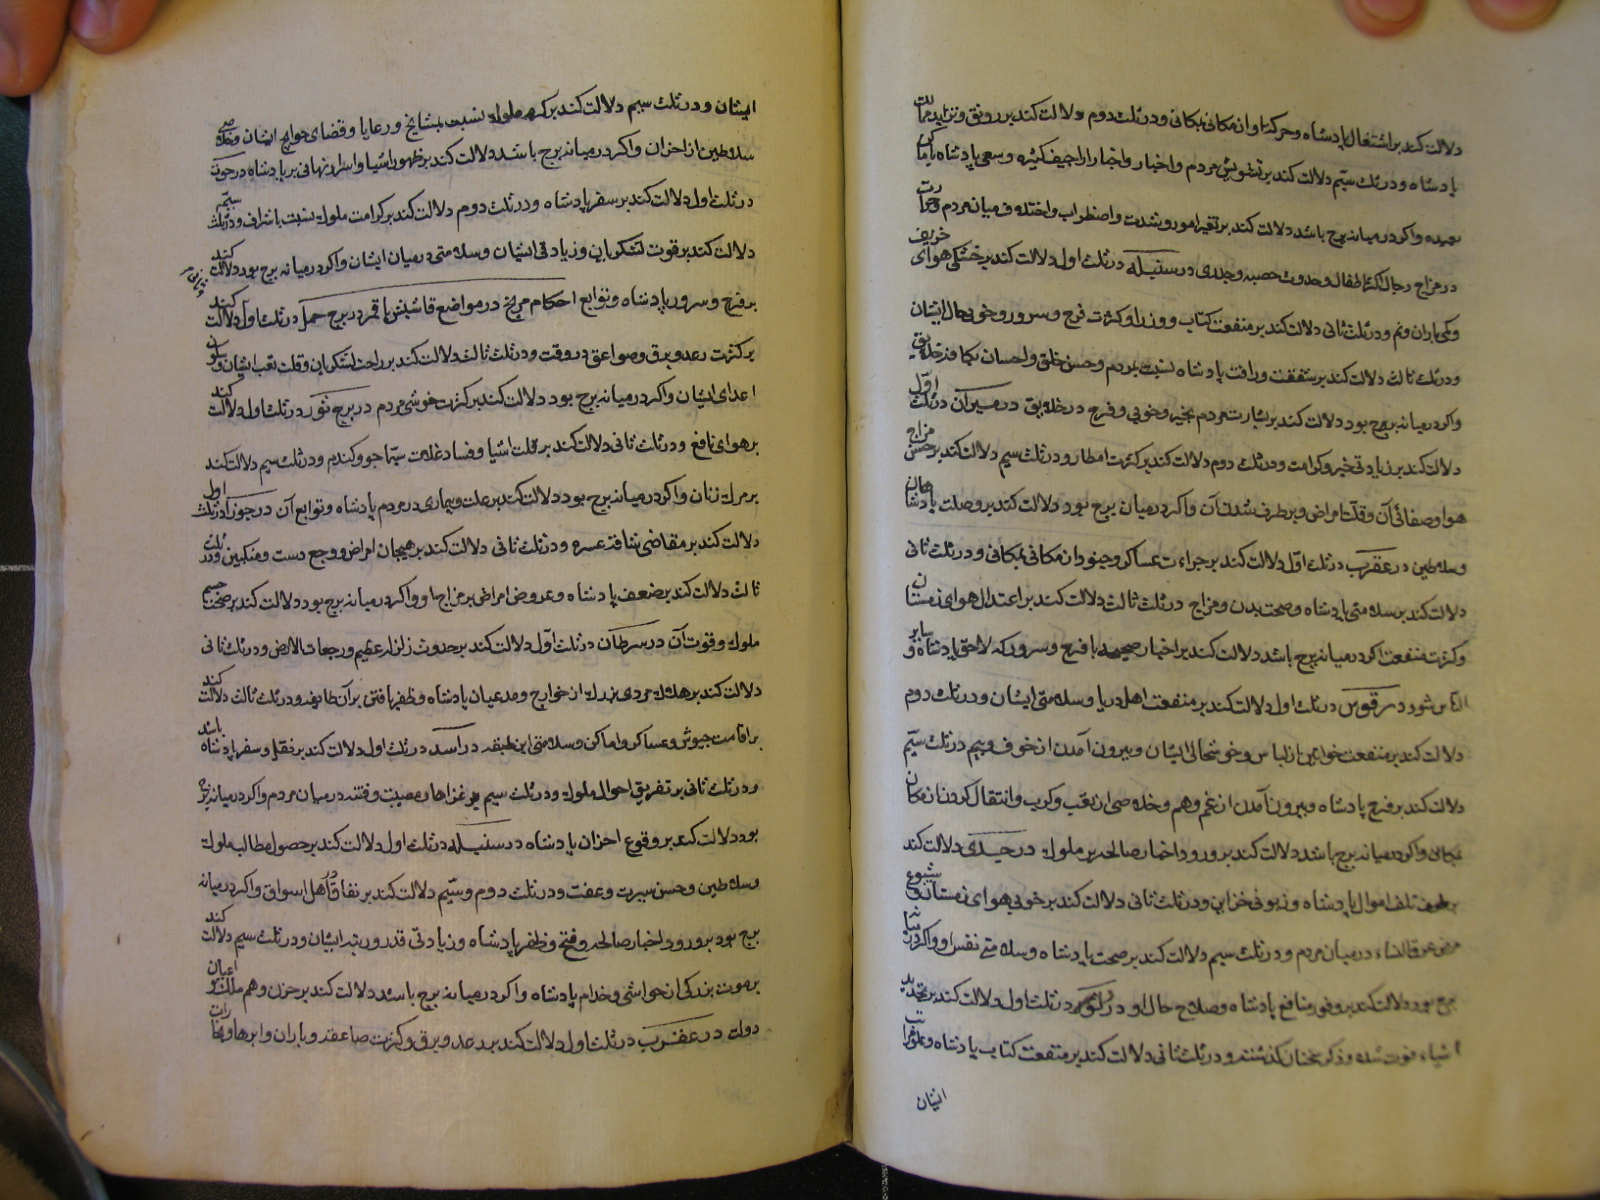 دلالت کند بر اشتغال پادشاه و حرکت او از مکانی بمکانی و در ثلث دوم دلالت کند بر رونق و تزاید حرکات
پادشاه و در ثلث سیم دلالت کند بر تشویش مردم و اخبار و اخبار اراجیف کثیره و سعی پادشاه باماکن
بعیده و اکر در میانه برج باشد دلالت کند بر تغیر امور و شدت و اضطراب و اختلاف میان مردم و حرارت
در مزاج رجال اکثر اطفال و حدوث حصبه و جدری در سنبله در ثلث اول دلالت کند بر خشکی هوای خریف
و کمی باران و نم و در ثلث ثانی دلالت کند بر منفعت کتاب و وزرا و کثرت فرح و سرور و خوبی حال ایشان
و در ثلث ثالث دلالت کند بر شفقت و رافت پادشاه نسبت بمردم و حسن خلق و احسان بکافه خلایق
و اکر در میانه برج بود دلالت کند بر بشارت مردم بخیر و خوبی و فرح در خلایق در میزان در ثلث اول
دلالت کند بر زیادتی خیر و کرامت و در ثلث دوم دلالت کند بر کثرت امطار و در ثلث سیم دلالت کند بر حسن مزاج
هوا و صفائی آن و قلت امراض و برطرف شدن آن و اکر در میان برج بود دلالت کند بر وصلت پادشاهان
و سلاطین در عقرب در ثلث اول دلالت کند بر جراءت عساکر و جنود از مکانی بمکانی و در ثلث ثانی
دلالت کند بر سلامتی پادشاه و صحت بدن و مزاج در ثلث ثالث دلالت کند بر اعتدال هوای زمستان
و کثرت منفعت اکر در میانه برج باشد دلالت کند بر اخبار صحیحه با فرح و سرور که لاحق پادشاه و سایر
الناس شود در قوس در ثلث اول دلالت کند بر منفعت اهل دریا و سلامتی ایشان و در ثلث دوم
دلالت کند بر منفعت خواتین از لباس و خوشحالی ایشان و بیرون آمدن از خوف و بیم در ثلث سیم
دلالت کند بر فرح پادشاه و بیرون آمدن از غم و هم و خلاصی از تعب و کرب و انتقال کردن از مکان
بمکان و اکر در میانه برج باشد دلالت کند بر ورود اخبار صالحه بر ملوک در جدی دلالت کند
بر تلف اموال پادشاه و زبونی خزاین و در ثلث ثانی دلالت کند بر خوبی هوای زمستان و شیوع
عرق النساء در میان مردم و در ثلث سیم دلالت کند بر صحت پادشاه و سلامتی نفس او و اکر در میانه
برج بود دلالت کند بر وفور منافع پادشاه و صلاح حال او در دلو در ثلث اول دلالت کند بر تجدید
اشیاء فوت شده و ذکر سخنان کذشته و در ثلث ثانی دلالت کند بر منفعت کتاب پادشاه و علو مراتب
ایشان
ایشان و در ثلث سیم دلالت کند بر کره ملوک نسبت بمشایخ و رعایا و قضای حوایج ایشان و خلاصی
سلاطین از احزان و اکر در میانه برج باشد دلالت کند بر ظهور اشیا و اسرار نهانی بر پادشاه در حوت
در ثلث اول دلالت کند بر سفر پادشاه و در ثلث دوم دلالت کند بر کرامت ملوک نسبت باشراف و در ثلث سیم
دلالت کند بر قوت لشکریان و زیادتی ایشان و سلامتی در میان ایشان و اکر در میانه برج بود دلالت کند
بر فرح و سرور پادشاه و توابع احکام مریخ در مواضع قاسبش با قمر در برج حمل در ثلث اول دلالت کند
بر کثرت رعد و برق و صواعق در وقت و در ثلث ثالث دلالت کند بر راحت لشکریان و قلت تعب ایشان و سکون
اعدای ایشان و اکر در میانه برج بود دلالت کند بر کثرت خوشی مردم در برج ثور در ثلث اول دلالت کند
بر هوای نافع و در ثلث ثانی دلالت کند بر قلت اشیا و فساد غلات سیما جو و کندم و در ثلث سیم دلالت کند
بر مرک زنان و اکر در میانه برج بود دلالت کند بر علت و بیماری در مردم پادشاه و توابع آن در جوزا در ثلث اول
دلالت کند بر مقاضی شاقه عسره و در ثلث ثانی دلالت کند بر هیجان امراض و وجع دست و منکبین و در ثلث
ثالث دلالت کند بر ضعف پادشاه و عروض امراض بر مزاج او و اکر در میانه برج بود دلالت کند بر صحت جسم
ملوک و قوت آن در سرطان در ثلث اول دلالت کند بر حدوث زلزله عظیم و رجعات الارض و در ثلث ثانی
دلالت کند بر هلاک مردی بزرک از خوارج و مدعیان پادشاه و ظفر یافتن بر آن طایفه و در ثلث ثالث دلالت کند
بر اقامت جیوش و عساکر و اماکن و سلامتی این طبقه در اسد در ثلث اول دلالت کند بر نقل و سفر پادشاه باشد
و در ثلث ثانی بر تفریق احوال ملوک و در ثلث سیم بر غزاها و مصیبت و فتنه در میان مردم و اکر در میانه برج
بود دلالت کند بر وقوع احزان پادشاه در سنبله در ثلث اول دلالت کند بر حصول مطالب ملوک
و سلاطین و حسن سیرت و عفت و در ثلث دوم و سیم دلالت کند بر نفاق اهل اسواق و اکر در میانه
برج بود بر ورود اخبار صالحه و فتح و ظفر پادشاه و زیادتی قدر و رتبه ایشان و در ثلث سیم دلالت کند
بر موت بزرکی از حواشی و خدام پادشاه و اکر در میانه برج باشد دلالت کند بر حزن و هم ملک و اعیان
دولت در عقرب در ثلث اول دلالت کند بر رعد و برق و کثرت صاعقه و باران و ابرها و بخارات